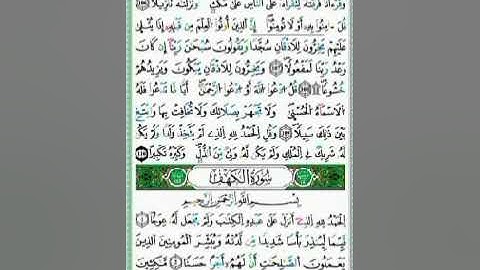 وَقُرْءَانًا فَرَقْنَٰهُ لِتَقْرَأَهُۥ عَلَى ٱلنَّاسِ عَلَىٰ مُكْثٍ وَنَزَّلْنَٰهُ تَنزِيلًا
قُلْ ءَامِنُوا۟ بِهِۦٓ أَوْ لَا تُومِنُوٓا۟ إِنَّ ٱلَّذِينَ أُوتُوا۟ ٱلْعِلْمَ مِن قَبْلِهِۦٓ إِذَا يُتْلَىٰ
عَلَيْهِمْ يَخِرُّونَ لِلْأَذْقَانِ سُجَّدًا وَيَقُولُونَ سُبْحَٰنَ رَبِّنَآ إِن كَانَ
وَعْدُ رَبِّنَا لَمَفْعُولًا وَيَخِرُّونَ لِلْأَذْقَانِ يَبْكُونَ وَيَزِيدُهُمْ
خُشُوعًا قُلُ ٱدْعُوا۟ ٱللَّهَ أَوُ ٱدْعُوا۟ ٱلرَّحْمَٰنَ أَيًّا مَّا تَدْعُوا۟ فَلَهُ
ٱلْأَسْمَآءُ ٱلْحُسْنَىٰ وَلَا تَجْهَرْ بِصَلَاتِكَ وَلَا تُخَافِتْ بِهَا وَٱبْتَغِ
بَيْنَ ذَٰلِكَ سَبِيلًا وَقُلِ ٱلْحَمْدُ لِلَّهِ ٱلَّذِے لَمْ يَتَّخِذْ وَلَدًا وَلَمْ يَكُن
لَّهُۥ شَرِيكٌ فِے ٱلْمُلْكِ وَلَمْ يَكُن لَّهُۥ وَلِيٌّ مِّنَ ٱلذُّلِّ وَكَبِّرْهُ تَكْبِيرًا
سُورَةُ الكَهْفِ
بِسْمِ اللَّهِ الرَّحْمَٰنِ الرَّحِيمِ
ٱلْحَمْدُ لِلَّهِ ٱلَّذِےٓ أَنزَلَ عَلَىٰ عَبْدِهِ ٱلْكِتَٰبَ وَلَمْ يَجْعَل لَّهُۥ عِوَجًا
قَيِّمًا لِّيُنذِرَ بَأْسًا شَدِيدًا مِّن لَّدُنْهُ وَيُبَشِّرَ ٱلْمُومِنِينَ ٱلَّذِينَ
يَعْمَلُونَ ٱلصَّٰلِحَٰتِ أَنَّ لَهُمْ أَجْرًا حَسَنًا مَّٰكِثِينَ